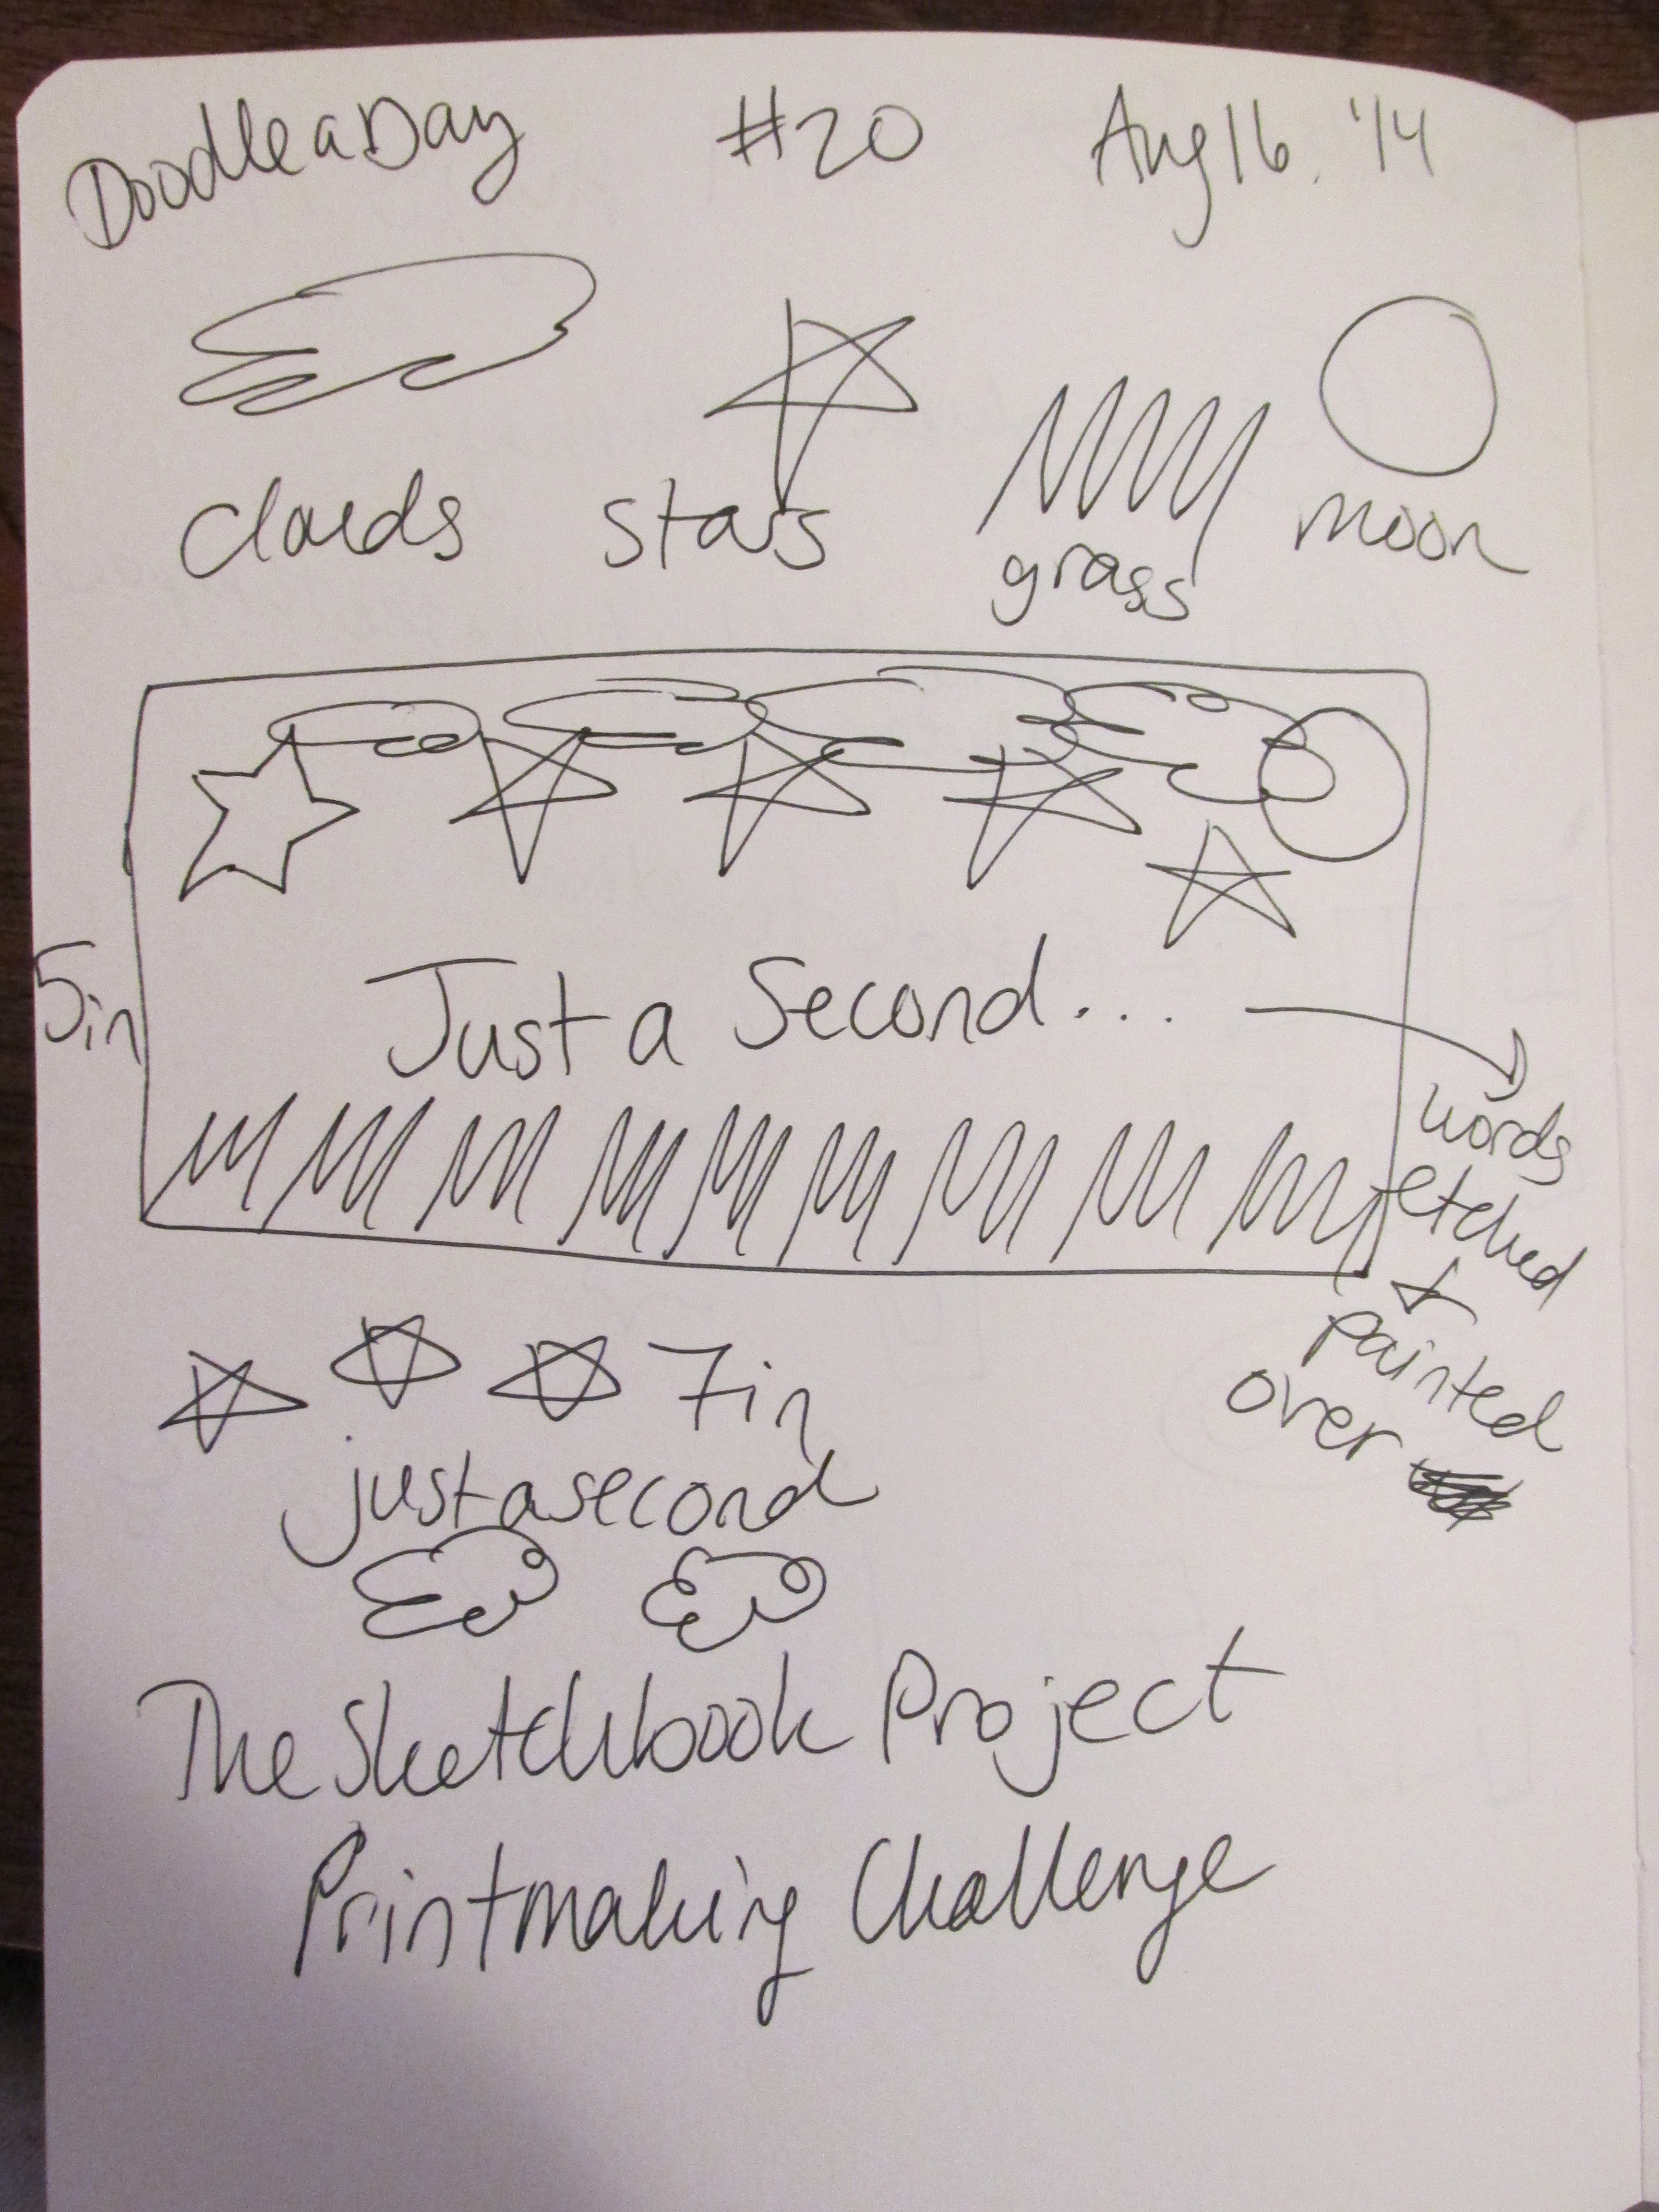 Doodle a Day #20 Aug 16. '14
clouds stars grass moon
5in
Just a Second...
words
etched
+
painted
over
7in
just a second
The Sketchbook Project
Printmaking Challenge